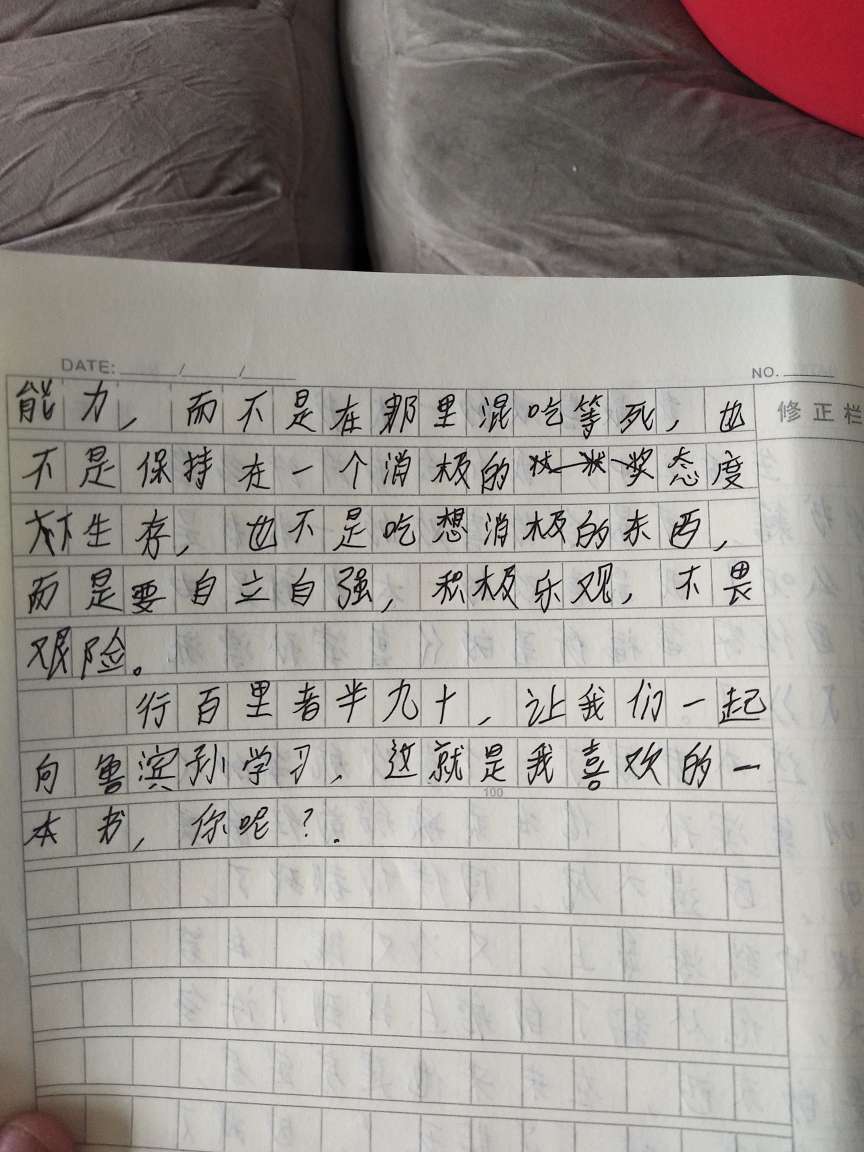 DATE: / /
NO.
修正栏
能力，而不是在那里混吃等死，也
不是保持在一个消极的态度
生存，也不是吃想消极的东西，
而是要自立自强，积极乐观，不畏
艰险。
行百里者半九十，让我们一起
向鲁滨孙学习，这就是我喜欢的一
100
本书，你呢？